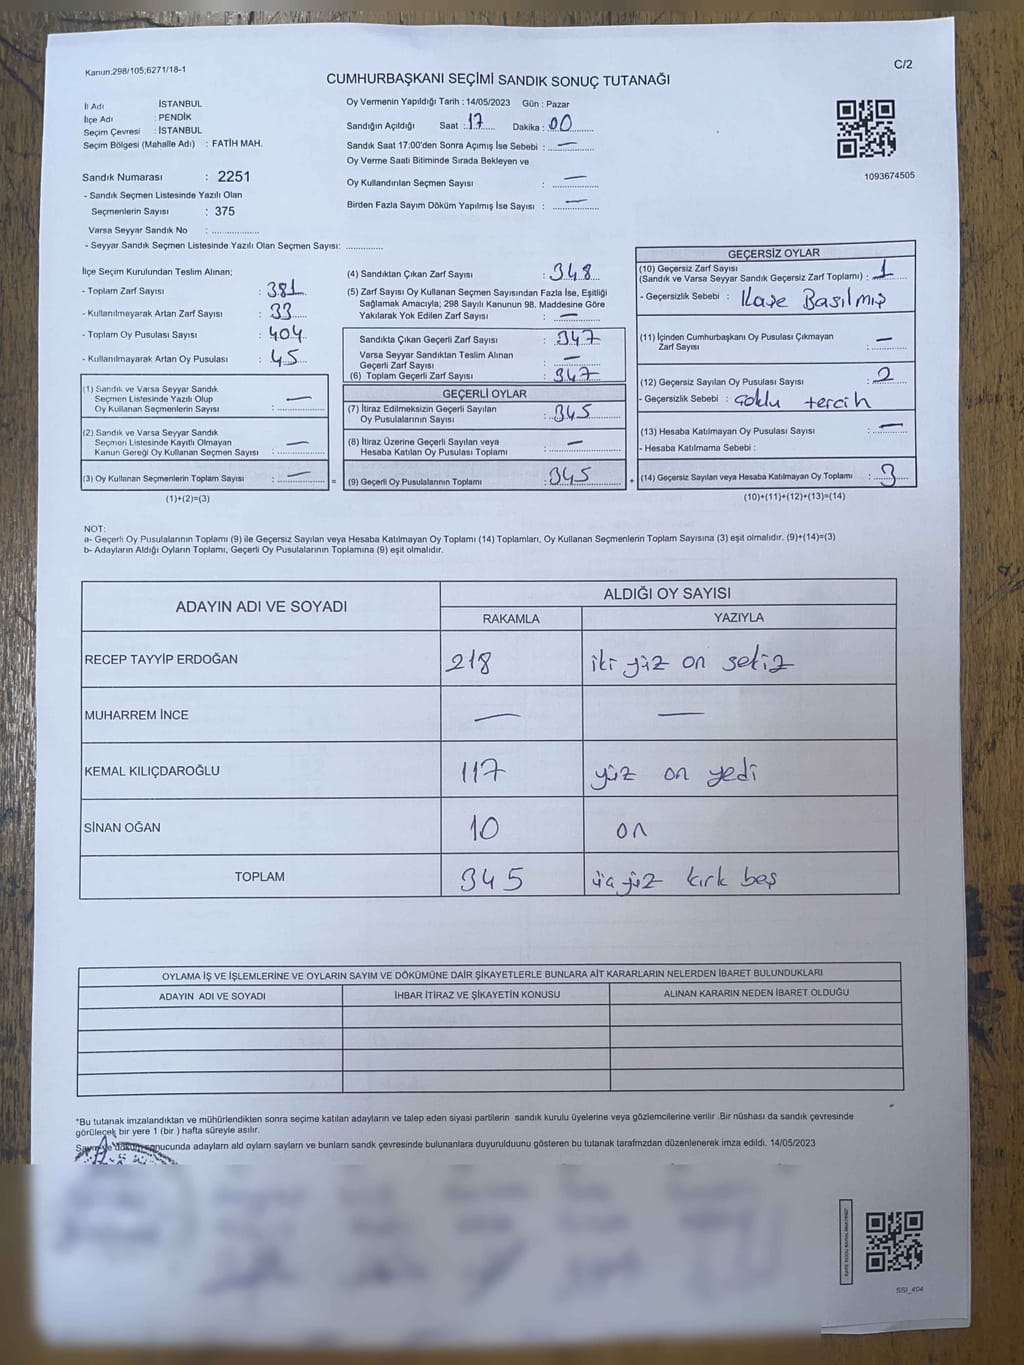 Kanun.298/105;6271/18-1
C/2
CUMHURBAŞKANI SEÇİMİ SANDIK SONUÇ TUTANAĞI
İl Adı : İSTANBUL
İlçe Adı : PENDİK
Seçim Çevresi : İSTANBUL
Seçim Bölgesi (Mahalle Adı) : FATİH MAH.
Sandık Numarası : 2251
- Sandık Seçmen Listesinde Yazılı Olan
Seçmenlerin Sayısı : 375
Varsa Seyyar Sandık No :
- Seyyar Sandık Listesinde Yazılı Olan Seçmen Sayısı:
Oy Vermenin Yapıldığı Tarih : 14/05/2023 Gün : Pazar
Sandığın Açıldığı Saat : 17 Dakika : 00
Sandık Saat 17:00'den Sonra Açımış İse Sebebi : —
Oy Verme Saati Bitiminde Sırada Bekleyen ve
Oy Kullandırılan Seçmen Sayısı : —
Birden Fazla Sayım Döküm Yapılmış İse Sayısı : —
1093674505
İlçe Seçim Kurulundan Teslim Alınan;
- Toplam Zarf Sayısı : 381
- Kullanılmayarak Artan Zarf Sayısı : 33
- Toplam Oy Pusulası Sayısı : 404
- Kullanılmayarak Artan Oy Pusulası : 45
(1) Sandık ve Varsa Seyyar Sandık
Seçmen Listesinde Yazılı Olup
Oy Kullanan Seçmenlerin Sayısı : —
(2) Sandık ve Varsa Seyyar Sandık
Seçmen Listesinde Kayıtlı Olmayan
Kanun Gereği Oy Kullanan Seçmen Sayısı : —
(3) Oy Kullanan Seçmenlerin Toplam Sayısı : — =
(1)+(2)=(3)
(4) Sandıktan Çıkan Zarf Sayısı : 348
(5) Zarf Sayısı Oy Kullanan Seçmen Sayısından Fazla İse, Eşitliği
Sağlamak Amacıyla; 298 Sayılı Kanunun 98. Maddesine Göre
Yakılarak Yok Edilen Zarf Sayısı : —
Sandıkta Çıkan Geçerli Zarf Sayısı : 347
Varsa Seyyar Sandıktan Teslim Alınan
Geçerli Zarf Sayısı : —
(6) Toplam Geçerli Zarf Sayısı : 347
GEÇERLİ OYLAR
(7) İtiraz Edilmeksizin Geçerli Sayılan
Oy Pusulalarının Sayısı : 345
(8) İtiraz Üzerine Geçerli Sayılan veya
Hesaba Katılan Oy Pusulası Toplamı : —
(9) Geçerli Oy Pusulalarının Toplamı : 345 +
GEÇERSİZ OYLAR
(10) Geçersiz Zarf Sayısı
(Sandık ve Varsa Seyyar Sandık Geçersiz Zarf Toplamı) : 1
- Geçersizlik Sebebi : Kaşe Basılmış
(11) İçinden Cumhurbaşkanı Oy Pusulası Çıkmayan
Zarf Sayısı : —
(12) Geçersiz Sayılan Oy Pusulası Sayısı : 2
- Geçersizlik Sebebi : Çoklu tercih
(13) Hesaba Katılmayan Oy Pusulası Sayısı : —
- Hesaba Katılmama Sebebi :
(14) Geçersiz Sayılan veya Hesaba Katılmayan Oy Toplamı : 3
(10)+(11)+(12)+(13)=(14)
NOT:
a- Geçerli Oy Pusulalarının Toplamı (9) ile Geçersiz Sayılan veya Hesaba Katılmayan Oy Toplamı (14) Toplamları, Oy Kullanan Seçmenlerin Toplam Sayısına (3) eşit olmalıdır. (9)+(14)=(3)
b- Adayların Aldığı Oyların Toplamı, Geçerli Oy Pusulalarının Toplamına (9) eşit olmalıdır.
ADAYIN ADI VE SOYADI
ALDIĞI OY SAYISI
RAKAMLA YAZIYLA
RECEP TAYYİP ERDOĞAN 218 iki yüz on sekiz
MUHARREM İNCE — —
KEMAL KILIÇDAROĞLU 117 yüz on yedi
SİNAN OĞAN 10 on
TOPLAM 345 üç yüz kırk beş
OYLAMA İŞ VE İŞLEMLERİNE VE OYLARIN SAYIM VE DÖKÜMÜNE DAİR ŞİKAYETLERLE BUNLARA AİT KARARLARIN NELERDEN İBARET BULUNDUKLARI
ADAYIN ADI VE SOYADI İHBAR İTİRAZ VE ŞİKAYETİN KONUSU ALINAN KARARIN NEDEN İBARET OLDUĞU
*Bu tutanak imzalandıktan ve mühürlendikten sonra seçime katılan adayların ve talep eden siyasi partilerin sandık kurulu üyelerine veya gözlemcilerine verilir .Bir nüshası da sandık çevresinde
görülecek bir yere 1 (bir ) hafta süreyle asılır.
sonucunda adayların ald oyların sayların ve bunların sandk çevresinde bulunanlara duyurulduunu gösteren bu tutanak tarafmzdan düzenlenerek imza edildi. 14/05/2023
SSI_404